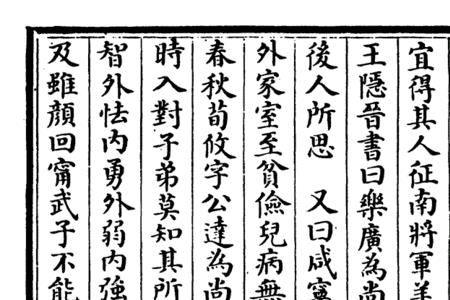 宜得其人征南將軍羊
王隱晉書曰樂廣為尚
後人所思 又曰咸寧
外家室至貧儉兒病無
春秋荀攸字公達為尚
時入對子弟莫知其所
智外怯内勇外弱内強
及雖顔回甯武子不能